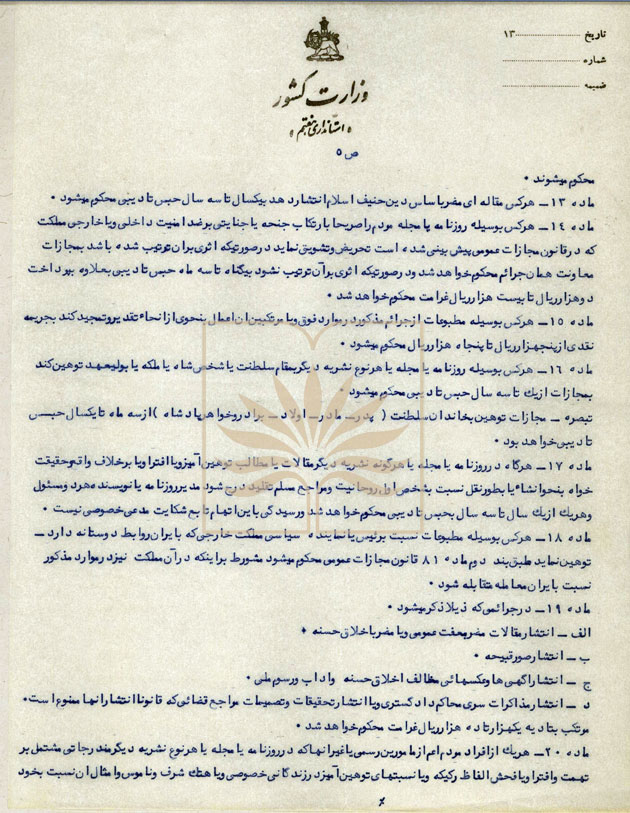 تاریخ ............ ۱۳
شماره ............
ضمیمه ............
وزارت کشور
«استانداری هفتم»
ص ۵
محکوم میشوند .
ماده ۱۳ــ هرکس مقاله ای مضر باساس دین حنیف اسلام انتشار دهد بیکسال تا سه سال حبس تادیبی محکوم میشود .
ماده ۱۴ــ هرکس بوسیله روزنامه یا مجله مردم را صریحا بارتکاب جنحه یا جنایتی بر ضد امنیت داخلی و یا خارجی مملکت
که در قانون مجازات عمومی پیش بینی شده است تحریض و تشویق نماید در صورتیکه اثری بر ان ترتیب شده باشد بمجازات
معاونت همان جرائم محکوم خواهد شد و در صورتیکه اثری بر آن ترتیب نشود بیکماه تا سه ماه حبس تادیبی بعلاوه بپرداخت
دو هزار ریال تا بیست هزار ریال غرامت محکوم خواهد شد .
ماده ۱۵ــ هرکس بوسیله مطبوعات از جرائم مذکور در موارد فوق و یا مرتکبین ان اعمال بنحوی از انحاء تقدیر و تمجید کند بجریمه
نقدی از پنجهزار ریال تا پنجاه هزار ریال محکوم میشود .
ماده ۱۶ــ هرکس بوسیله روزنامه یا مجله یا هر نوع نشریه دیگر بمقام سلطنت یا شخص شاه یا ملکه یا بولیعهد توهین کند
بمجازات از یک تا سه سال حبس تادیبی محکوم میشود .
تبصره ــ مجازات توهین بخاندان سلطنت ( پدر ــ مادر ــ اولاد ــ برادر و خواهر پادشاه ) از سه ماه تا یکسال حبس
تادیبی خواهد بود .
ماده ۱۷ــ هرگاه در روزنامه یا مجله یا هرگونه نشریه دیگر مقالات یا مطالب توهین آمیز و یا افترا و یا برخلاف واقع و حقیقت
خواه بنحو انشاء یا بطور نقل نسبت بشخص اول روحانیت و مراجع مسلم تقلید درج شود مدیر روزنامه یا نویسنده هر دو مسئول
و هریک از یک سال تا سه سال بحبس تادیبی محکوم خواهد شد و رسیدگی باین اتهام تابع شکایت مدعی خصوصی نیست .
ماده ۱۸ــ هرکس بوسیله مطبوعات نسبت برئیس یا نماینده سیاسی مملکت خارجی که با ایران روابط دوستانه دارد ــ
توهین نماید طبق بند دوم ماده ۸۱ قانون مجازات عمومی محکوم میشود مشروط بر اینکه در آن مملکت نیز در موارد مذکور
نسبت با یران معامله متقابله شود .
ماده ۱۹ــ در جرائمی که ذیلا ذکر میشود .
الف ــ انتشار مقالات مضر بعفت عمومی و یا مضر باخلاق حسنه .
ب ــ انتشار صور قبیحه .
ج ــ انتشار آگهی ها و عکسهائی مخالف اخلاق حسنه و اداب و رسوم ملی .
د ــ انتشار مذاکرات سری محاکم دادگستری و یا انتشار تحقیقات و تصمیمات مراجع قضائی که قانونا انتشار انها ممنوع است .
مرتکب بتادیه یکهزار تا ده هزار ریال غرامت محکوم خواهد شد .
ماده ۲۰ــ هریک از افراد مردم اعم از مامورین رسمی یا غیر انها که در روزنامه یا مجله یا هر نوع نشریه دیگر مندرجاتی مشتمل بر
تهمت و افترا و یا فحش الفاظ رکیکه و یا نسبتهای توهین آمیز در زندگانی خصوصی و یا هتک شرف و ناموس و امثال ان نسبت بخود